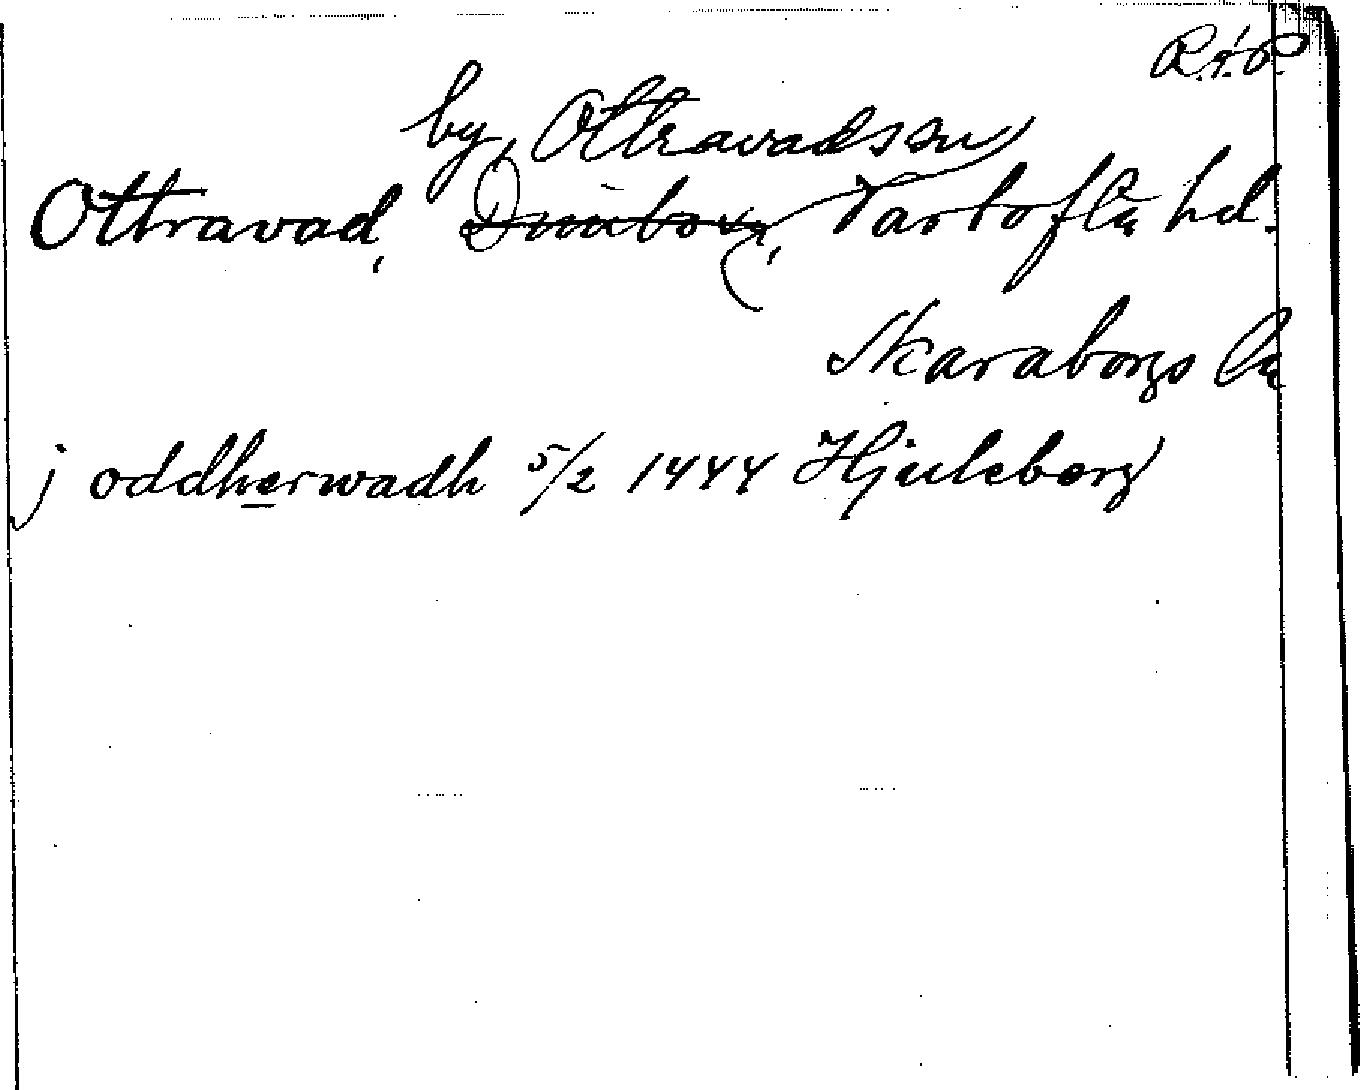 by, Ottravads sn
Ottravad, Dimbo sn, Vartofta hd.
Skaraborgs län
j oddherwadh 5/2 1444 Hjuleberg